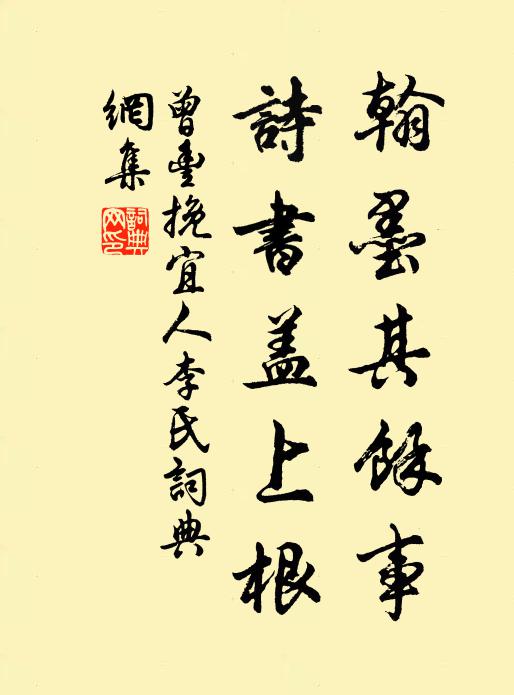 翰墨其餘事
詩書盖上根
曾豊挽宜人李氏詞典
網集
詞典网印